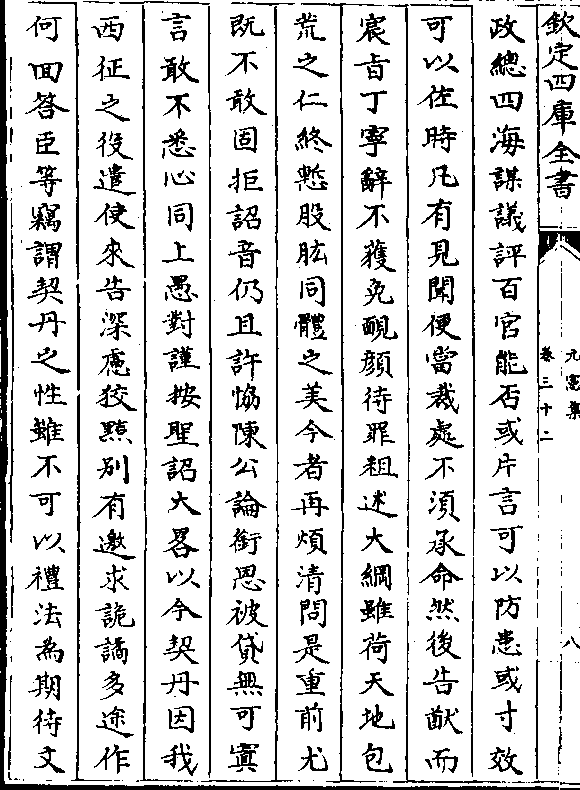 欽定四庫全書
元憲集
卷三十二
八
政總四海謀議評百官能否或片言可以防患或寸效
可以佐時凡有見聞便當裁處不須承命然後告猷而
宸旨丁寧辭不獲免靦顔待罪粗述大綱雖荷天地包
荒之仁終慙股肱同體之美今者再煩清問是重前尤
既不敢固拒詔音仍且許恊陳公論銜恩被貸無可寘
言敢不悉心同上愚對謹按聖詔大畧以今契丹因我
西征之役遣使來告深慮狡黠别有邀求詭譎多途作
何回答臣等竊謂契丹之性雖不可以禮法為期待文